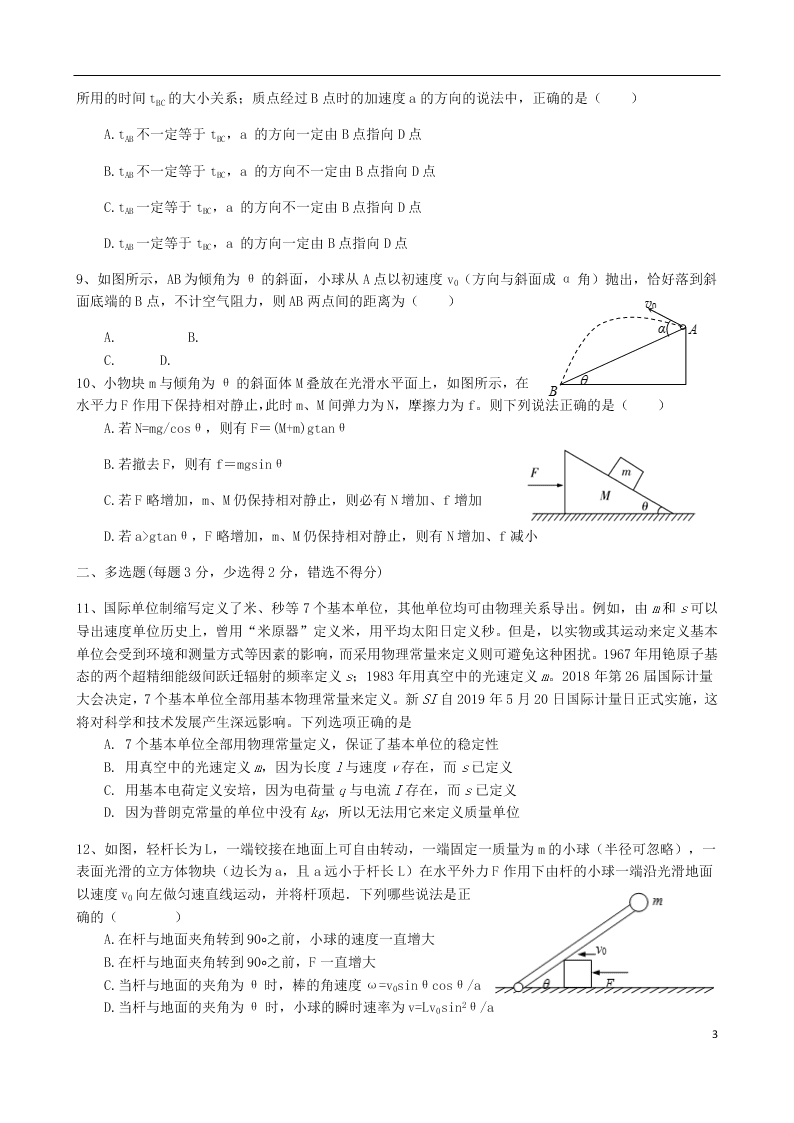 所用的时间 tBC 的大小关系；质点经过 B 点时的加速度 a 的方向的说法中，正确的是（　　）
A.tAB 不一定等于 tBC，a 的方向一定由 B 点指向 D 点
B.tAB 不一定等于 tBC，a 的方向不一定由 B 点指向 D 点
C.tAB 一定等于 tBC，a 的方向不一定由 B 点指向 D 点
D.tAB 一定等于 tBC，a 的方向一定由 B 点指向 D 点
9、如图所示，AB 为倾角为 θ 的斜面，小球从 A 点以初速度 v0（方向与斜面成 α 角）抛出，恰好落到斜
面底端的 B 点，不计空气阻力，则 AB 两点间的距离为（　　）
A.　　B.
C.　　D.
v0
α
A
B
θ
10、小物块 m 与倾角为 θ 的斜面体 M 叠放在光滑水平面上，如图所示，在
水平力 F 作用下保持相对静止，此时 m、M 间弹力为 N，摩擦力为 f。则下列说法正确的是（　　）
A.若 N=mg/cosθ，则有 F＝(M+m)gtanθ
B.若撤去 F，则有 f＝mgsinθ
C.若 F 略增加，m、M 仍保持相对静止，则必有 N 增加、f 增加
D.若 a>gtanθ，F 略增加，m、M 仍保持相对静止，则有 N 增加、f 减小
F
m
M
θ
二、多选题(每题 3 分，少选得 2 分，错选不得分)
11、国际单位制缩写定义了米、秒等 7 个基本单位，其他单位均可由物理关系导出。例如，由 m 和 s 可以
导出速度单位历史上，曾用“米原器”定义米，用平均太阳日定义秒。但是，以实物或其运动来定义基本
单位会受到环境和测量方式等因素的影响，而采用物理常量来定义则可避免这种困扰。1967 年用铯原子基
态的两个超精细能级间跃迁辐射的频率定义 s；1983 年用真空中的光速定义 m。2018 年第 26 届国际计量
大会决定，7 个基本单位全部用基本物理常量来定义。新 SI 自 2019 年 5 月 20 日国际计量日正式实施，这
将对科学和技术发展产生深远影响。下列选项正确的是
A. 7 个基本单位全部用物理常量定义，保证了基本单位的稳定性
B. 用真空中的光速定义 m，因为长度 l 与速度 v 存在，而 s 已定义
C. 用基本电荷定义安培，因为电荷量 q 与电流 I 存在，而 s 已定义
D. 因为普朗克常量的单位中没有 kg，所以无法用它来定义质量单位
12、如图，轻杆长为 L，一端铰接在地面上可自由转动，一端固定一质量为 m 的小球（半径可忽略），一
表面光滑的立方体物块（边长为 a，且 a 远小于杆长 L）在水平外力 F 作用下由杆的小球一端沿光滑地面
以速度 v0 向左做匀速直线运动，并将杆顶起．下列哪些说法是正
确的（　　）
A.在杆与地面夹角转到 90°之前，小球的速度一直增大
B.在杆与地面夹角转到 90°之前，F 一直增大
C.当杆与地面的夹角为 θ 时，棒的角速度 ω=v0sinθcosθ/a
D.当杆与地面的夹角为 θ 时，小球的瞬时速率为 v=Lv0sin²θ/a
m
v0
θ
F
3